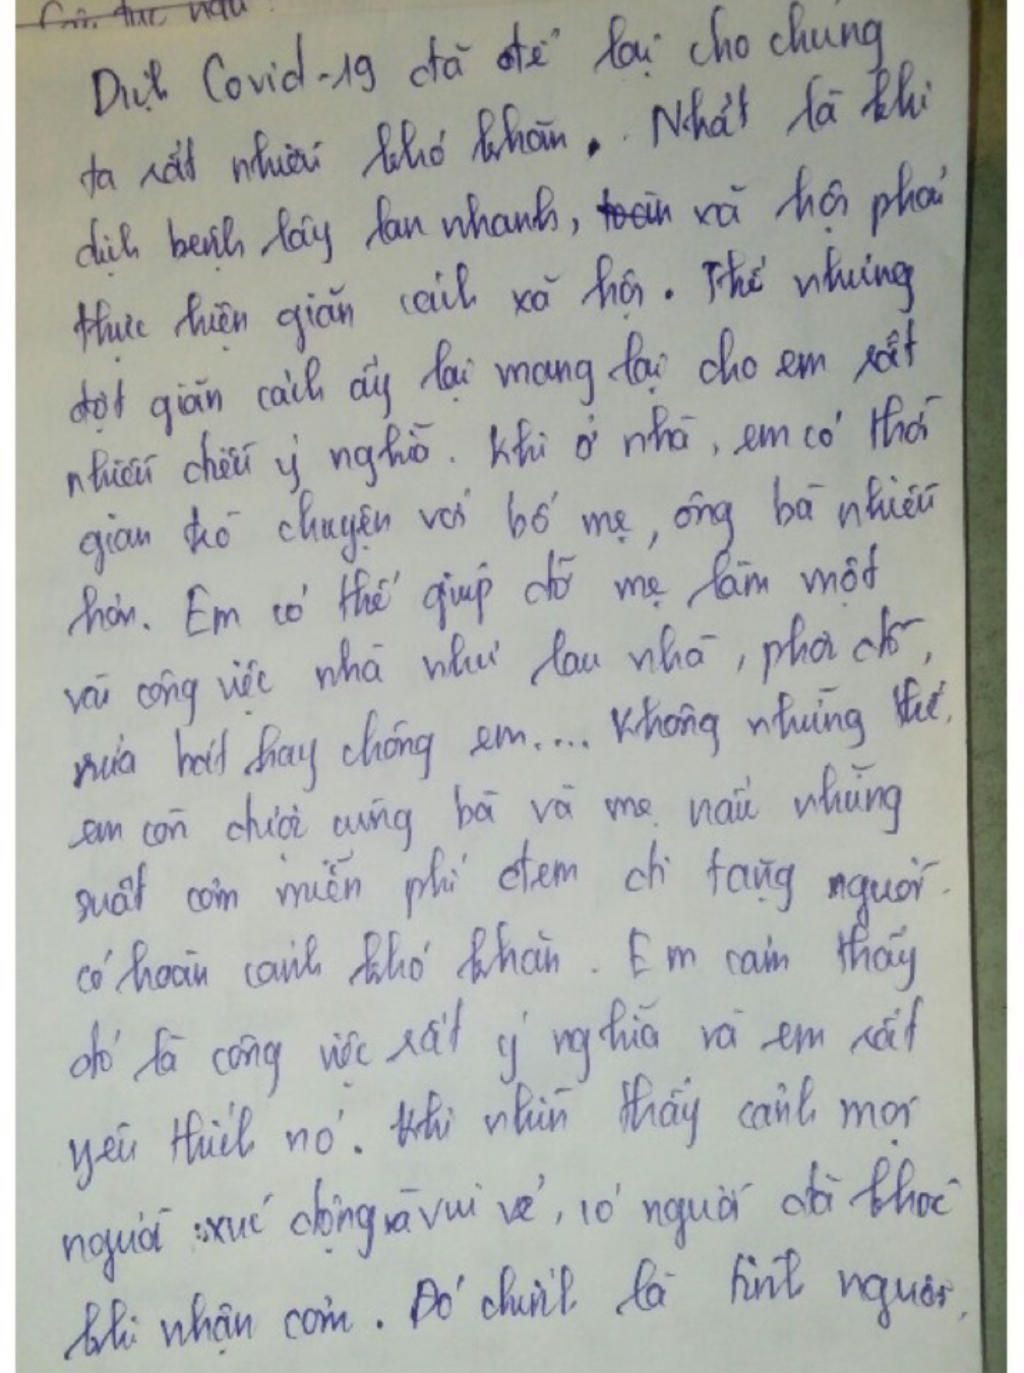 Dịch Covid-19 đã để lại cho chúng
ta rất nhiều khó khăn. Nhất là khi
dịch bệnh lây lan nhanh, xã hội phải
thực hiện giãn cách xã hội. Thế nhưng
đợt giãn cách ấy lại mang lại cho em rất
nhiều điều ý nghĩa. Khi ở nhà, em có thời
gian trò chuyện với bố mẹ, ông bà nhiều
hơn. Em có thể giúp đỡ mẹ làm một
vài công việc nhà như lau nhà, phơi đồ,
rửa bát hay chông em.... Không những thế,
em còn được cùng bà và mẹ nấu những
suất cơm miễn phí đem đi tặng người
có hoàn cảnh khó khăn. Em cảm thấy
đó là công việc rất ý nghĩa và em rất
yêu thích nó. Khi nhìn thấy cảnh mọi
người xúc động và vui vẻ, có người đã khóc
khi nhận cơm. Đó chính là tình người,